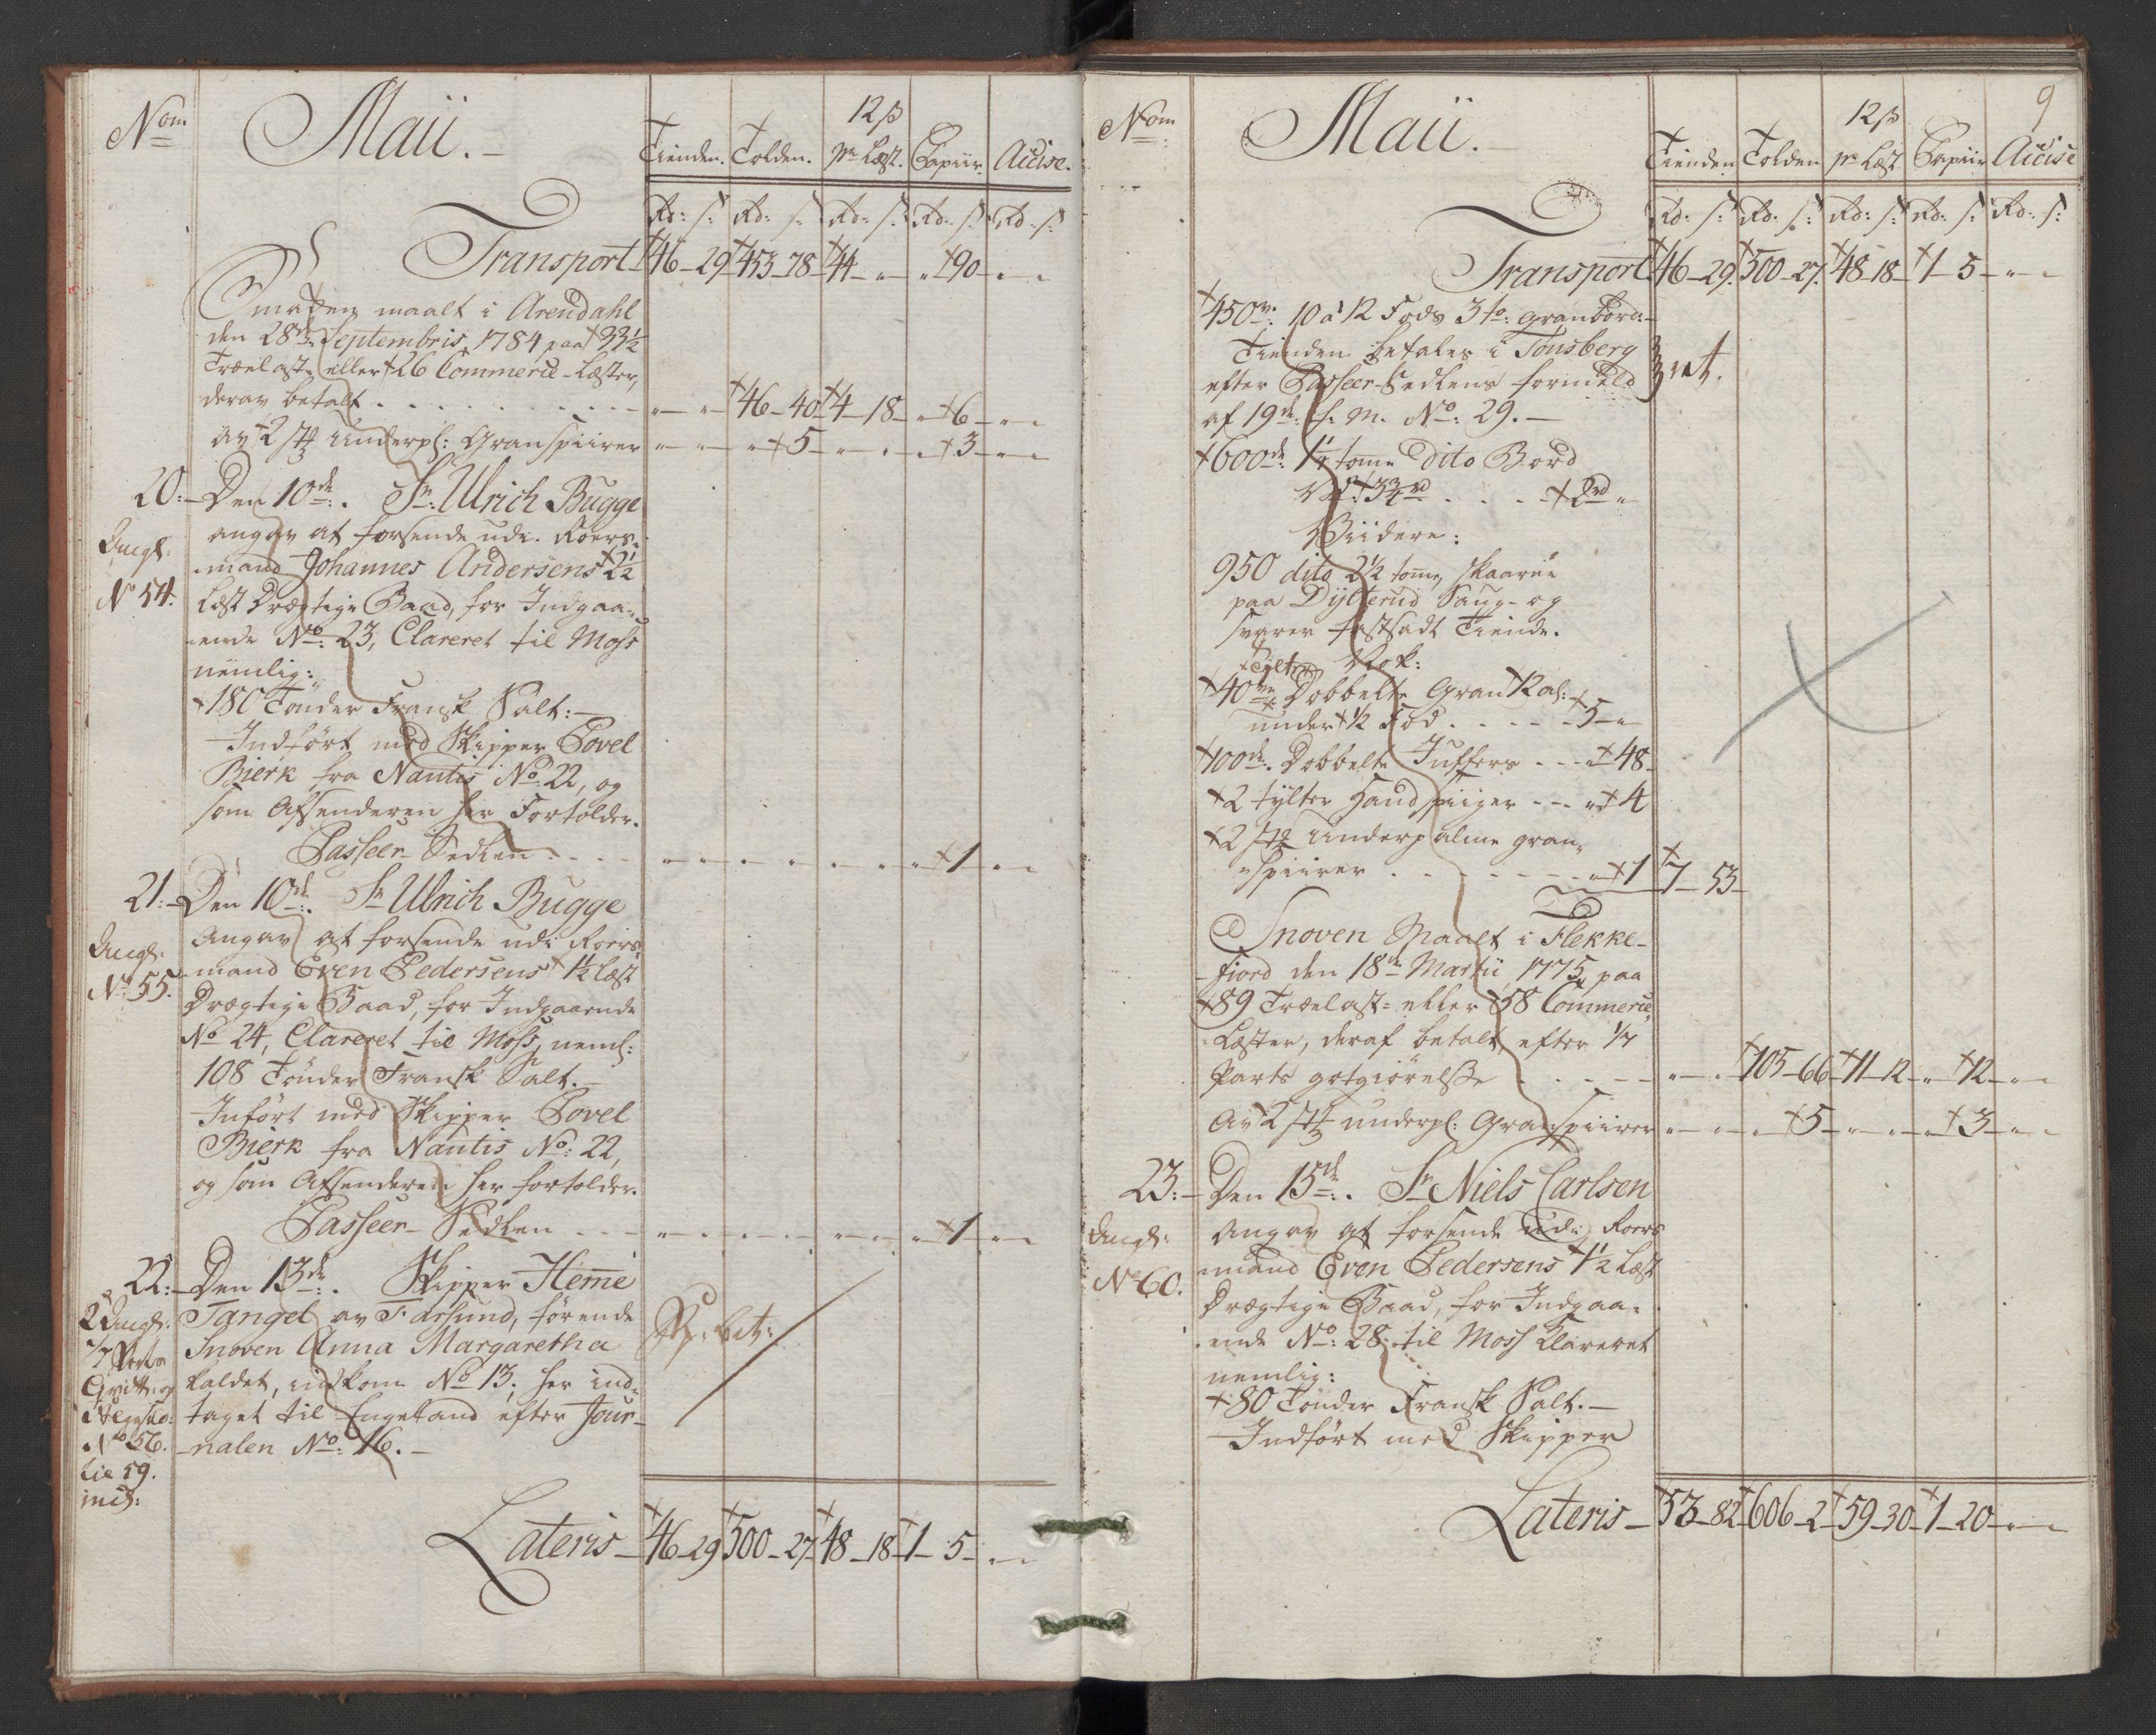 Nom
Maii.
12 s
Tienden. Tolden. pr Læst. Papiir. Accise.
Rd: s: Rd: s: Rd: s: Rd: s: Rd: s:
Transport 46 - 29 453 - 78 44 - " " 90 - " "
Smaken maalt i Arendahl
den 28de Septembris 1784 paa 33½
Trælast- eller 26 Commerce-Læster,
derav betalt . . . " - " 46 - 40 4 - 18 - " 6 - " "
Av 2 st Underpl: Granspiirer " - " - " 5 - " - " - " 3 - " "
20: Den 10de. Sr. Ulrich Bugge
angav at forsende udi Roers-
Angs: mand Johannes Andersens 2½
No 54. Læst Drægtige Baad, for Indgaa-
ende No: 23, Clareret til Moss
nemlig:
180 Tønder Fransk Salt:
Indført med Skipper Povel
Bierk fra Nantis No: 22, og
som Afsenderen her Fortolder.
Passeer-Sedlen . . . . " - " - " - " - " - " - " 1 - " "
21: Den 10de. Sr Ulrich Bugge
Angav at forsende udi Roers-
Angs: mand Even Pedersens 1½ Læst
No 55. Drægtige Baad, for Indgaaende
No 24, Clareret til Moss, neml:
108 Tønder Fransk Salt.
Infört med Skipper Povel
Bierk fra Nantis No: 22,
og som Afsenderen her fortolder.
Passeer-Sedlen . . . " - " - " - " - " - " - " 1 - " "
22: Den 13de. Skipper Heme
2 Angs: Tangel av Farsund, førende
1/7 Parts Snoven Anna Margaretha
Qvitt: og kaldet, indkom No 13, her ind-
No 56. taget til Engeland efter Jour-
nalen No: 16.
til 59.
incl:
Lateris 46 - 29 500 - 27 48 - 18 1 - 5 - " "
9
Nom
Maii.
12 s
Tienden Tolden pr Læst Papiir Accise
Rd: s: Rd: s: Rd: s: Rd: s: Rd: s:
Transport 46 - 29. 500 - 27. 48 - 18 1 - 5 - " "
450 10 a 12 Fods 3 to: granbord
Tienden betales i Tønsberg
efter Passeer-Sedlens formeld
af 19de f. M. No: 29.
600de 1¼ tome Dito Bord
3¾ . . . 2
Viidere:
950 dito 2½ tome, skaarne
paa Dylterud Saug- og
svarer fastsadt Tiende.
Nok:
Tylter
40 Dobbelte Gran
under ½ Fod . . . . . 5 - "
100de Dobbelte Juffers . . . " 48
2 tylter Handspiiger . . . " 4
2 st Underpalme gran-
spiirer . . . . . " 1 7 - 53
Snoven Maalt i Flekke-
fiord den 18de Martii 1775, paa
89 Trælast- eller 58 Commerce-
Læster, deraf betalt efter 1/7
Parts gotgiörelse . . . . " - " 105 - 66 11 - 12 - " 12 - " "
Av 2 st underpl: Granspiirer " - " - " 5 - " - " - " 3 - " "
23: Den 15de. Sr Niels Carlsen
Angs: Angav at forsende udi Roers-
No 60. mand Even Pedersens 1½ Læst
Drægtige Baad, for Indgaa-
ende No: 28. til Moss Klareret
nemlig:
80 Tønder Fransk Salt.
Indført med Skipper
Lateris 53 - 82 606 - 2 59 - 30 1 - 20 - " "